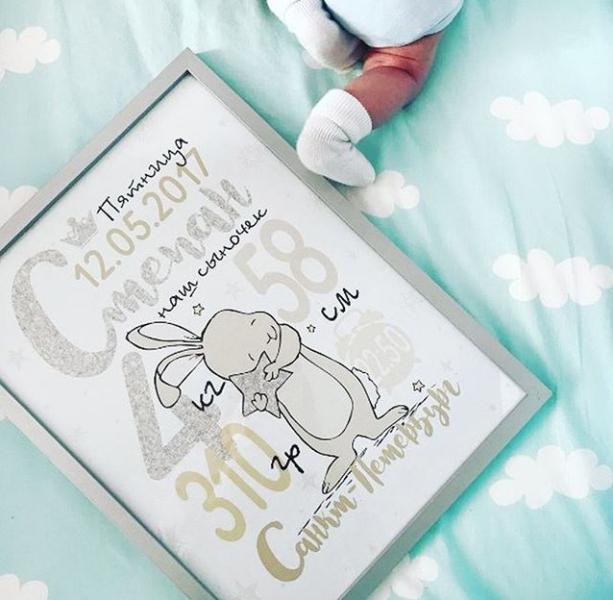 Пятница
12.05.2017
Степан
наш сыночек
58
см
4
кг
310
гр
Санкт-Петербург